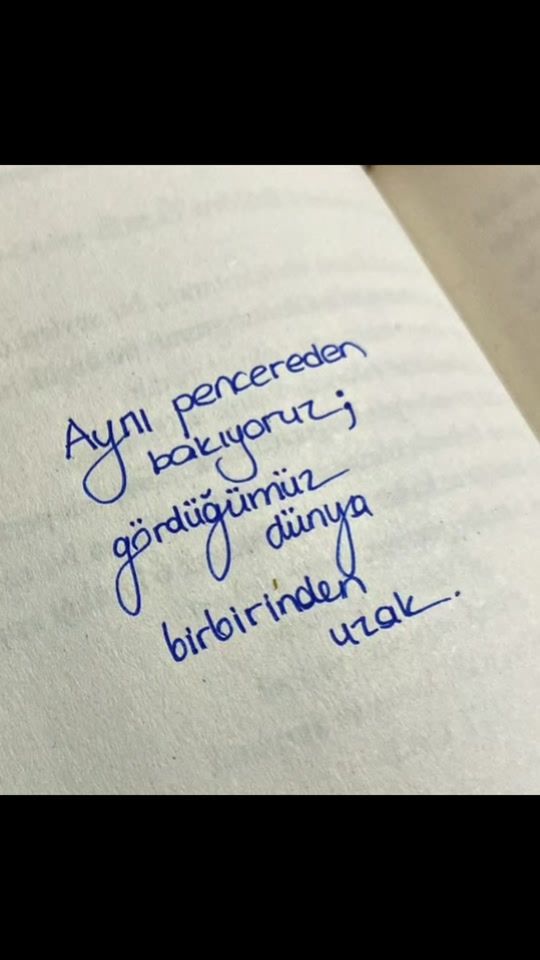 Aynı pencereden
bakıyoruz;
gördüğümüz
dünya
birbirinden
uzak.